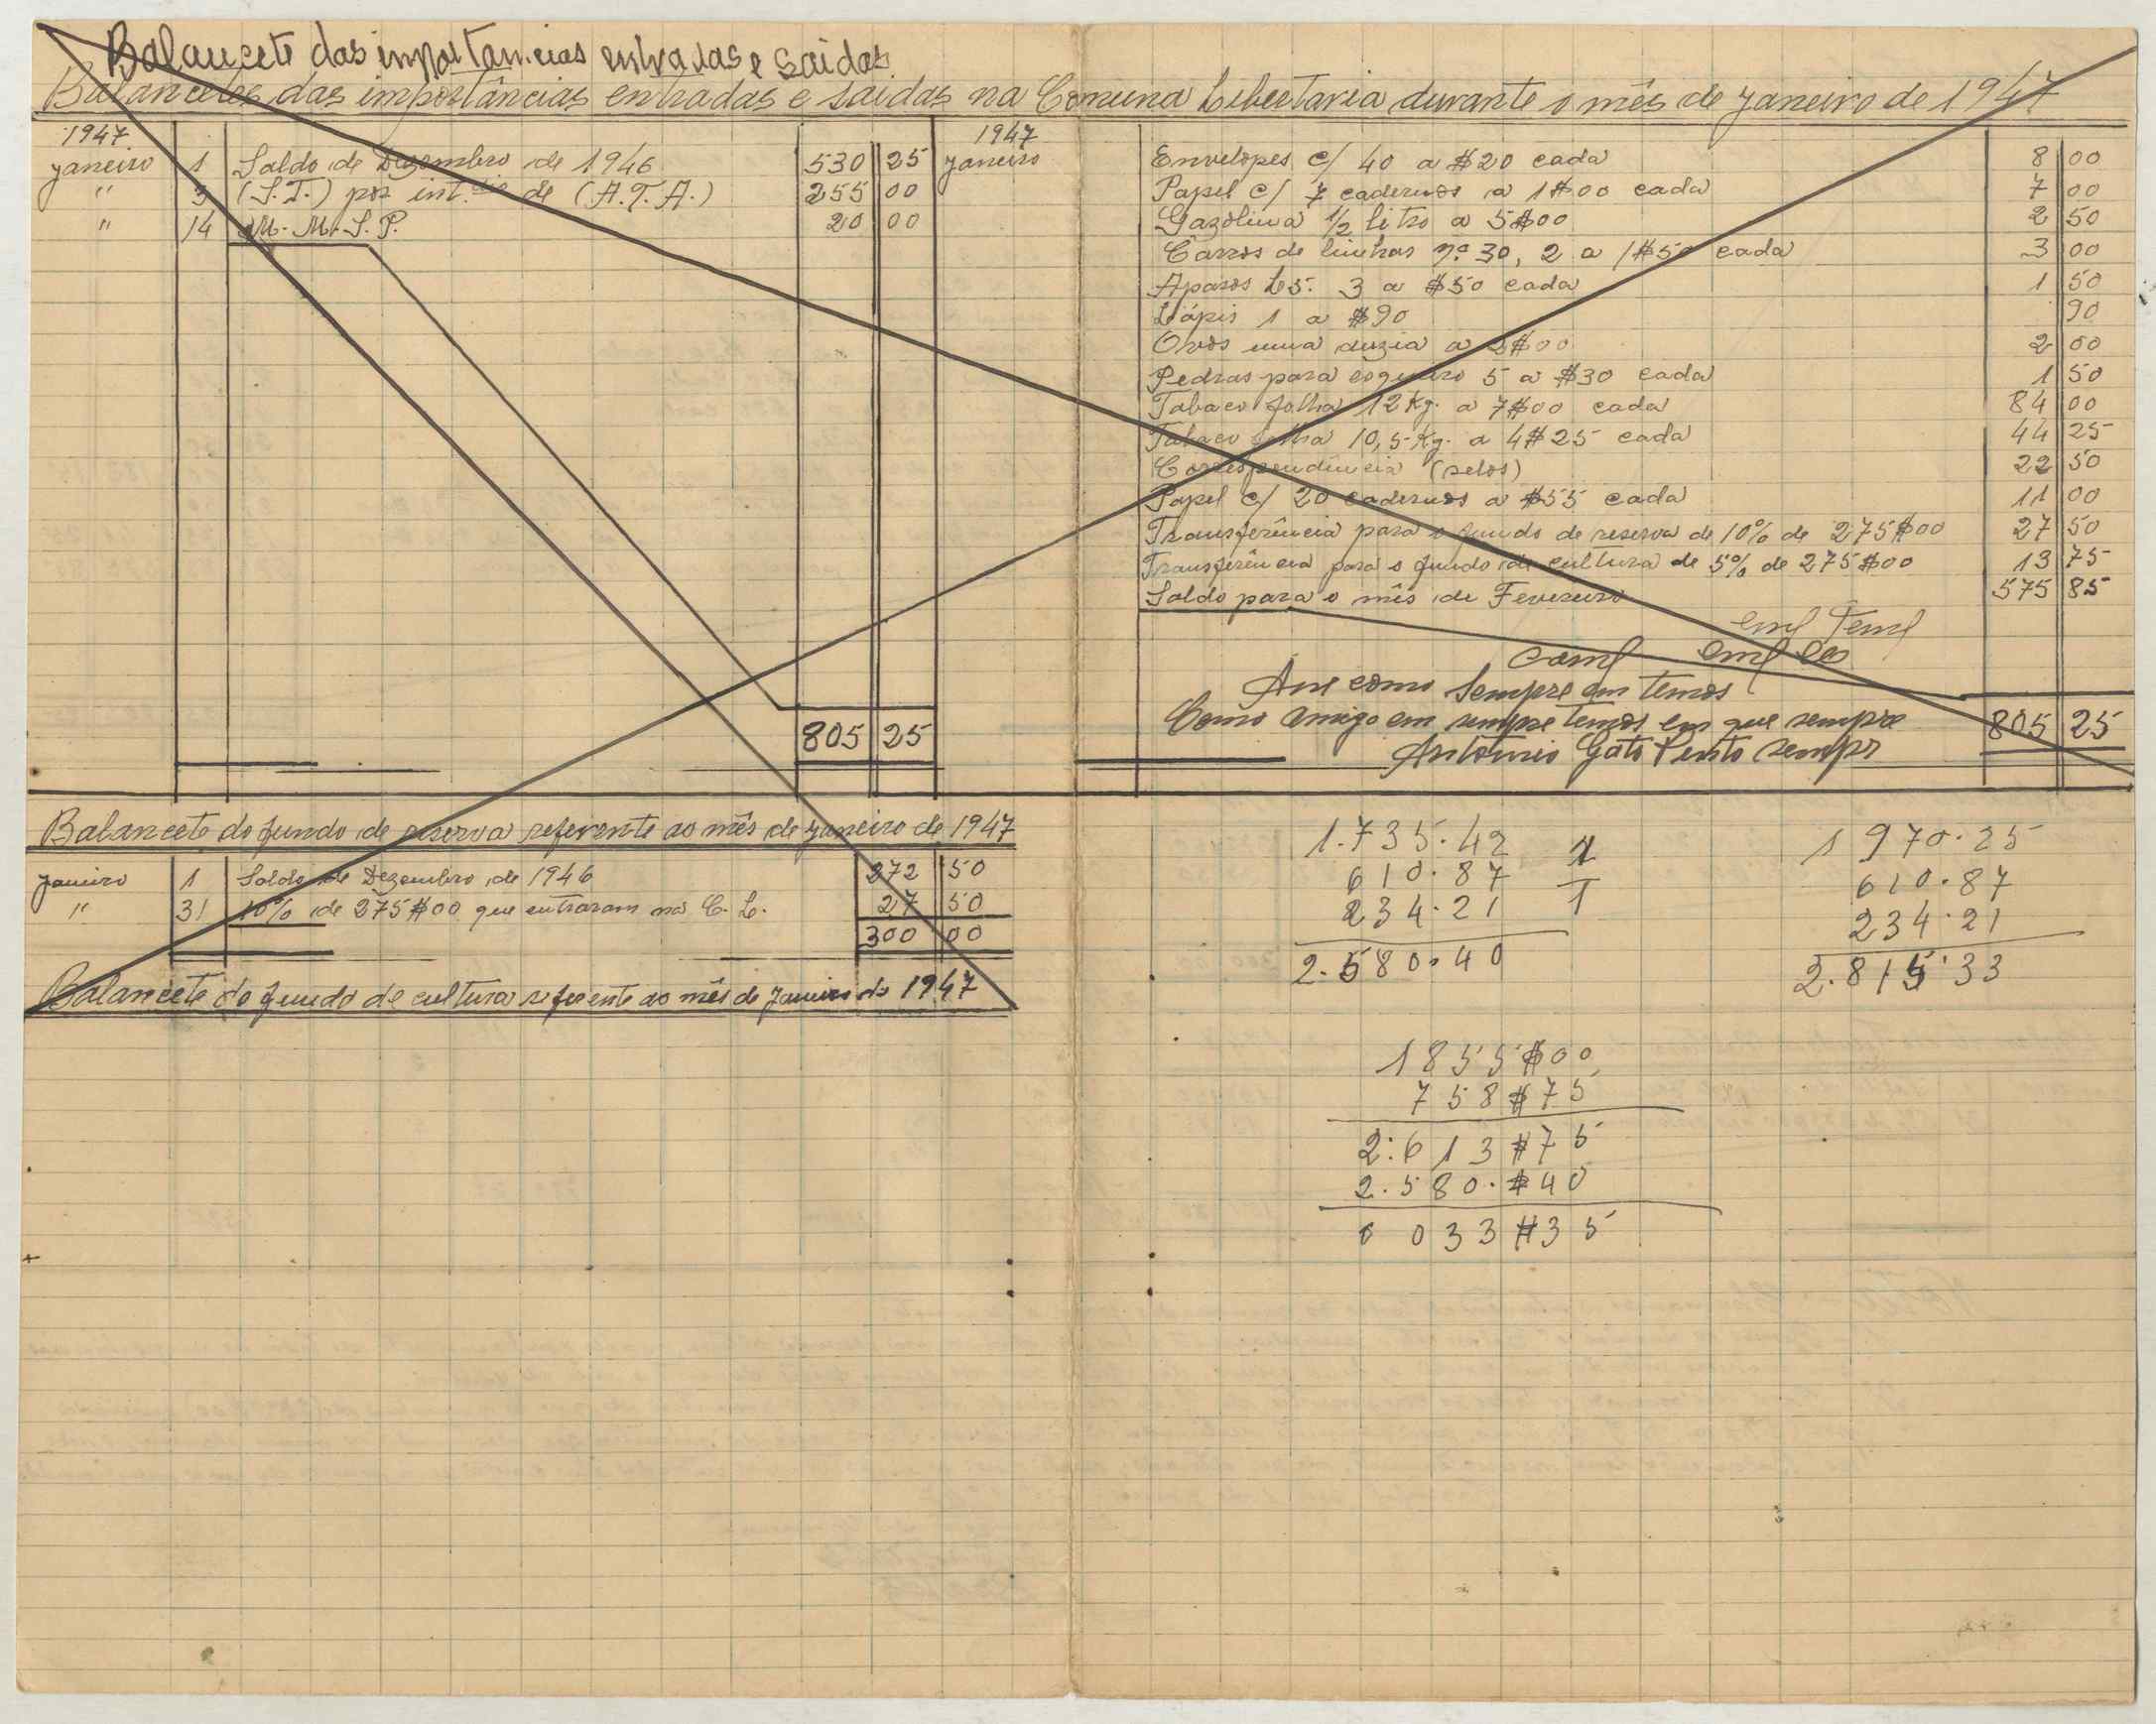 Balancete das importancias entradas e saidas
Balancetes das importâncias entradas e saidas na Comuna Libertaria durante o mês de Janeiro de 1947
1947
Janeiro 1 Saldo de Dezembro de 1946 530 25
" 3 (S.T.) por int.dio de (A.T.A.) 255 00
" 14 M. M. S. P. 20 00
805 25
1947
Janeiro Envelopes c/ 40 a $20 cada 8 00
Papel c/ 7 cadernos a 1$00 cada 7 00
Gazolina 1/2 litro a 5$00 2 50
Carros de linhas nº 30, 2 a 1$50 cada 3 00
Aparos L5. 3 a $50 cada 1 50
Lápis 1 a $90 90
Ovos uma duzia a 2$00 2 00
Pedras para esqueiro 5 a $30 cada 1 50
Tabaco folha 12 Kg. a 7$00 cada 84 00
Tabaco folha 10,5 Kg. a 4$25 cada 44 25
Correspondência (selos) 22 50
Papel c/ 20 cadernos a $55 cada 11 00
Transferência para o fundo de reserva de 10% de 275$00 27 50
Transferência para o fundo de cultura de 5% de 275$00 13 75
Saldo para o mês de Fevereiro 575 85
como sempre em temos
Como amigo em sempre temos em que sempre
Antonio Gato Pinto sempr
805 25
Balancete do fundo de reserva referente ao mês de Janeiro de 1947
Janeiro 1 Saldo de Dezembro de 1946 272 50
" 31 10% de 275$00 que entraram na C. L. 27 50
300 00
Balancete do fundo de cultura referente ao mês de Janeiro de 1947
1.735.42 1
610.87
234.21 1
2.580.40
1 970.25
610.87
234.21
2.815.33
1855$00
758$75
2:613$75
2.580.$40
0 033$35